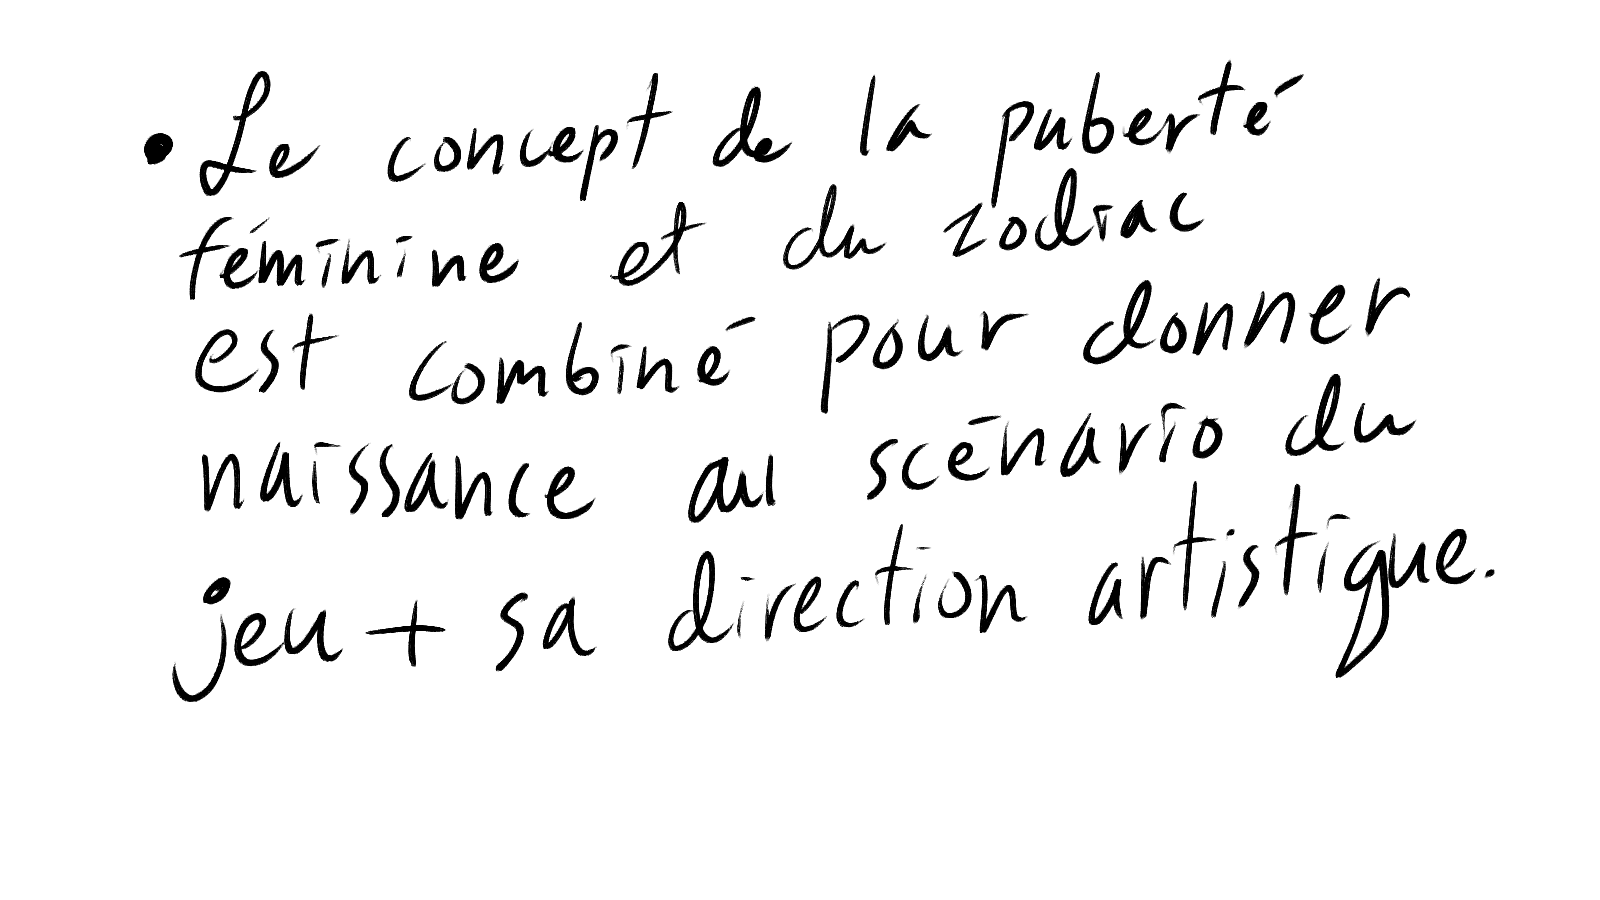 • Le concept de la puberté
féminine et du zodiac
est combiné pour donner
naissance au scénario du
jeu + sa direction artistique.